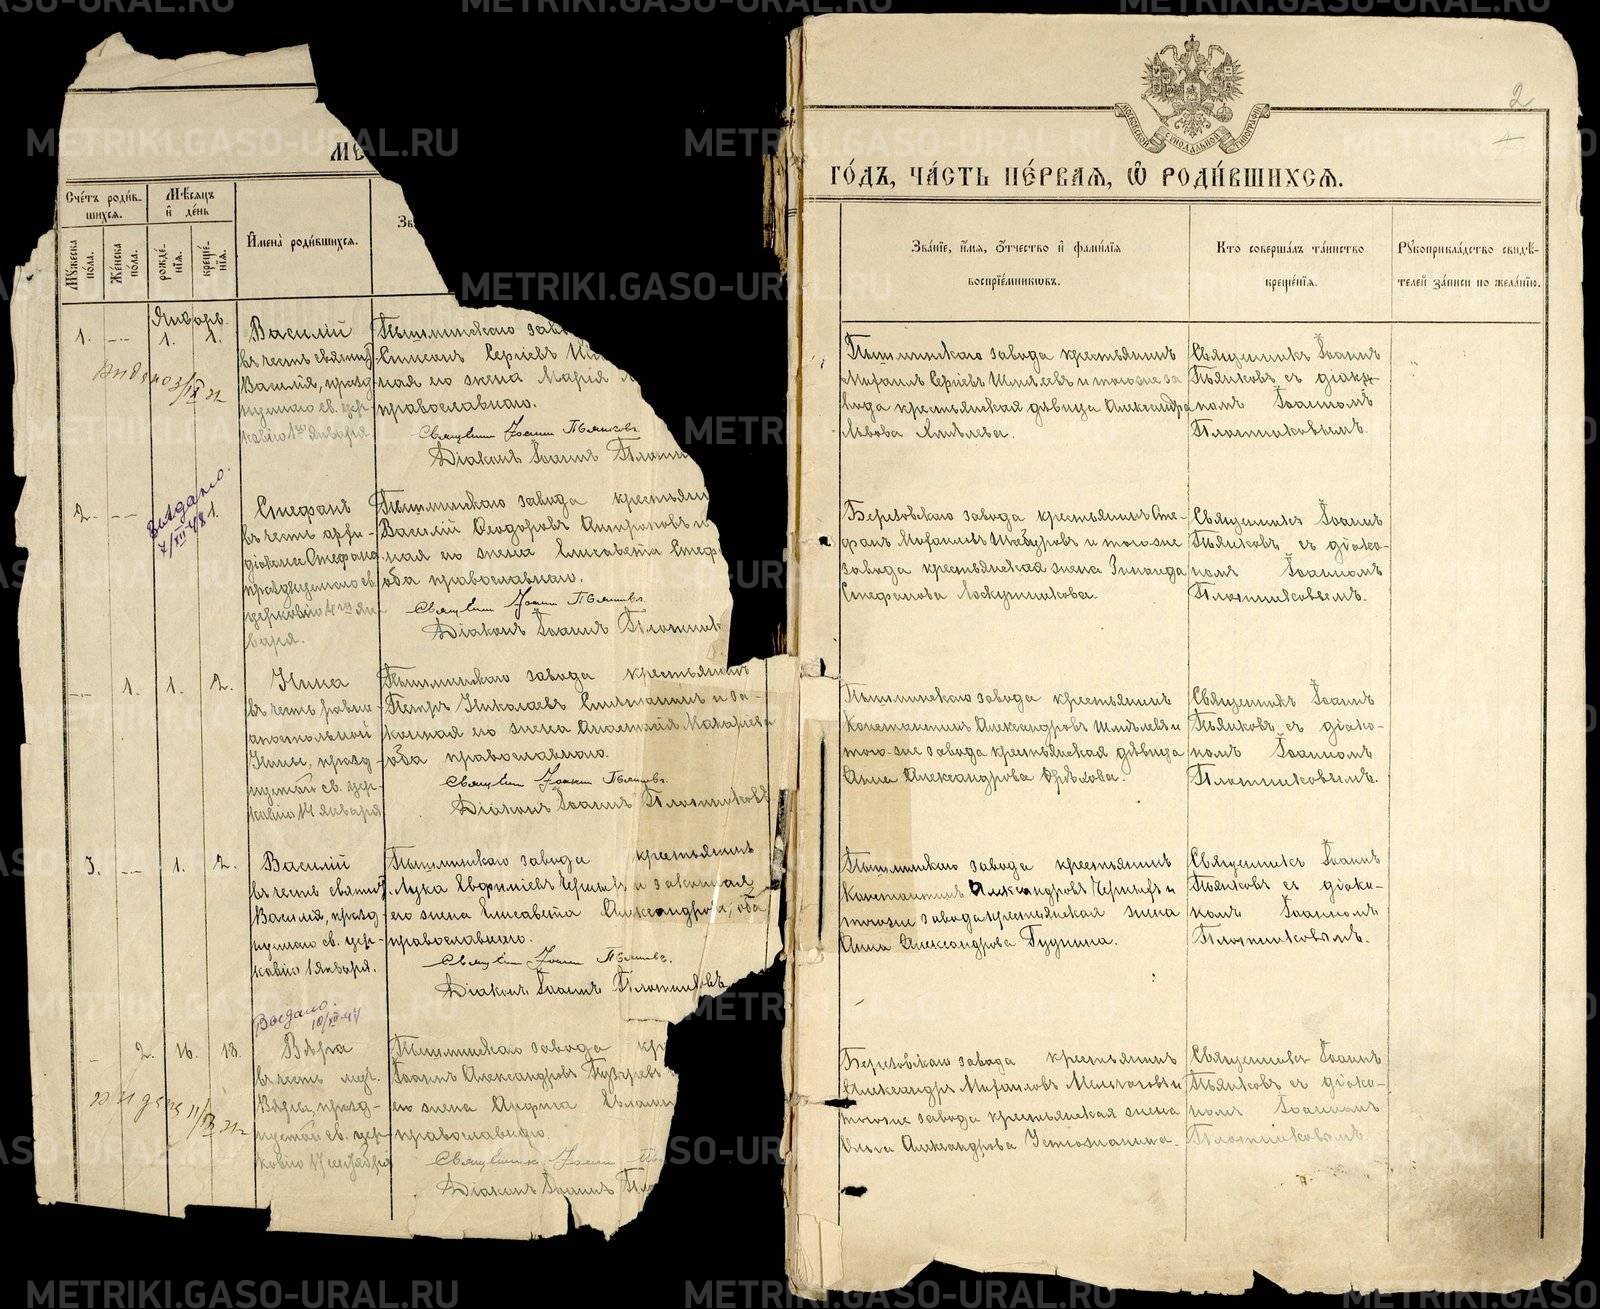 МЕ
Счетъ родив-
шихся.
Мѣсяцъ
и день
Имена родившихся.
Зв
Мужеска
пола.
Женска
пола.
рожде-
нія.
креще-
нія.
Январь.
1. -- 1. 1.
Василій
въ честь святит.
Василія, празд-
нуемаго св. цер-
ковію 1го января
Пышминскаго заво
Симеонъ Сергіевъ
ная его жена Марія
православнаго.
Священникъ Іоаннъ Пьянковъ.
Діаконъ Іоаннъ Плотни
2. -- 1.
Выдано
7/XII 48
Стефанъ
въ честь архи-
діакона Стефана
празднуемаго св.
церковію 4го ян-
варя.
Пышминскаго завода крестьян
Василій Ѳеодоровъ Антроповъ и
ная его жена Елисавета Стеф
оба православнаго.
Священникъ Іоаннъ Пьянковъ.
Діаконъ Іоаннъ Плотник
-- 1. 1. 2.
Нина
въ честь равно-
апостольной
Нины, празд-
нуемой св. цер-
ковію 14 января
Пышминскаго завода крестьянинъ
Петръ Николаевъ и за-
конная его жена Анастасія Макарьева
оба православнаго.
Священникъ Іоаннъ Пьянковъ.
Діаконъ Іоаннъ Плотниковъ
3. -- 1. 2.
Василій
въ честь святит.
Василія, празд-
нуемаго св. цер-
ковію 1 января.
Пышминскаго завода крестьянинъ
Лука Евфиміевъ Черныхъ и законная
его жена Елисавета Александрова, оба
православнаго.
Священникъ Іоаннъ Пьянковъ.
Діаконъ Іоаннъ Плотниковъ
Выдано
10/XII-47
- 2. 16. 18.
Вѣра
въ честь муч.
Вѣры, празд-
нуемой св. цер-
ковію 17 сентября
Пышминскаго завода кр
Іоаннъ Александровъ Пузыревъ
его жена Анфиса
православную.
Священникъ Іоаннъ Пь
Діаконъ Іоаннъ Пло
2
МОСКОВСКОЙ СѴНОДАЛЬНОЙ ТИПОГРАФІИ
ГОДЪ, ЧАСТЬ ПЕРВАЯ, Ѡ РОДИВШИХСЯ.
Званіе, имя, отчество и фамилія
воспріемниковъ.
Кто совершалъ таинство
крещенія.
Рукоприкладство свидѣ-
телей записи по желанію.
Пышминскаго завода крестьянинъ
Михаилъ Сергіевъ Шмелевъ и тогоже за
вода крестьянская дѣвица Александра
Львова Хмѣлева.
Священникъ Іоаннъ
Пьянковъ съ діако-
номъ Іоанномъ
Плотниковымъ.
Березовскаго завода крестьянинъ Сте-
фанъ Михаиловъ и тогоже
завода крестьянская жена Зинаида
Стефанова Лоскутникова.
Священникъ Іоаннъ
Пьянковъ съ діако-
номъ Іоанномъ
Плотниковымъ.
Пышминскаго завода крестьянинъ
Константинъ Александровъ Шмелевъ и
того-же завода крестьянская дѣвица
Анна Александрова Орѣхова.
Священникъ Іоаннъ
Пьянковъ съ діако-
номъ Іоанномъ
Плотниковымъ.
Пышминскаго завода крестьянинъ
Константинъ Александровъ Черныхъ и
тогоже завода крестьянская жена
Анна Александрова Гуднина.
Священникъ Іоаннъ
Пьянковъ съ діако-
номъ Іоанномъ
Плотниковымъ.
Березовскаго завода крестьянинъ
Александръ Михаиловъ и
тогоже завода крестьянская жена
Ольга Александрова Устюжанина.
Священникъ Іоаннъ
Пьянковъ съ діако-
номъ Іоанномъ
Плотниковымъ.
METRIKI.GASO-URAL.RU